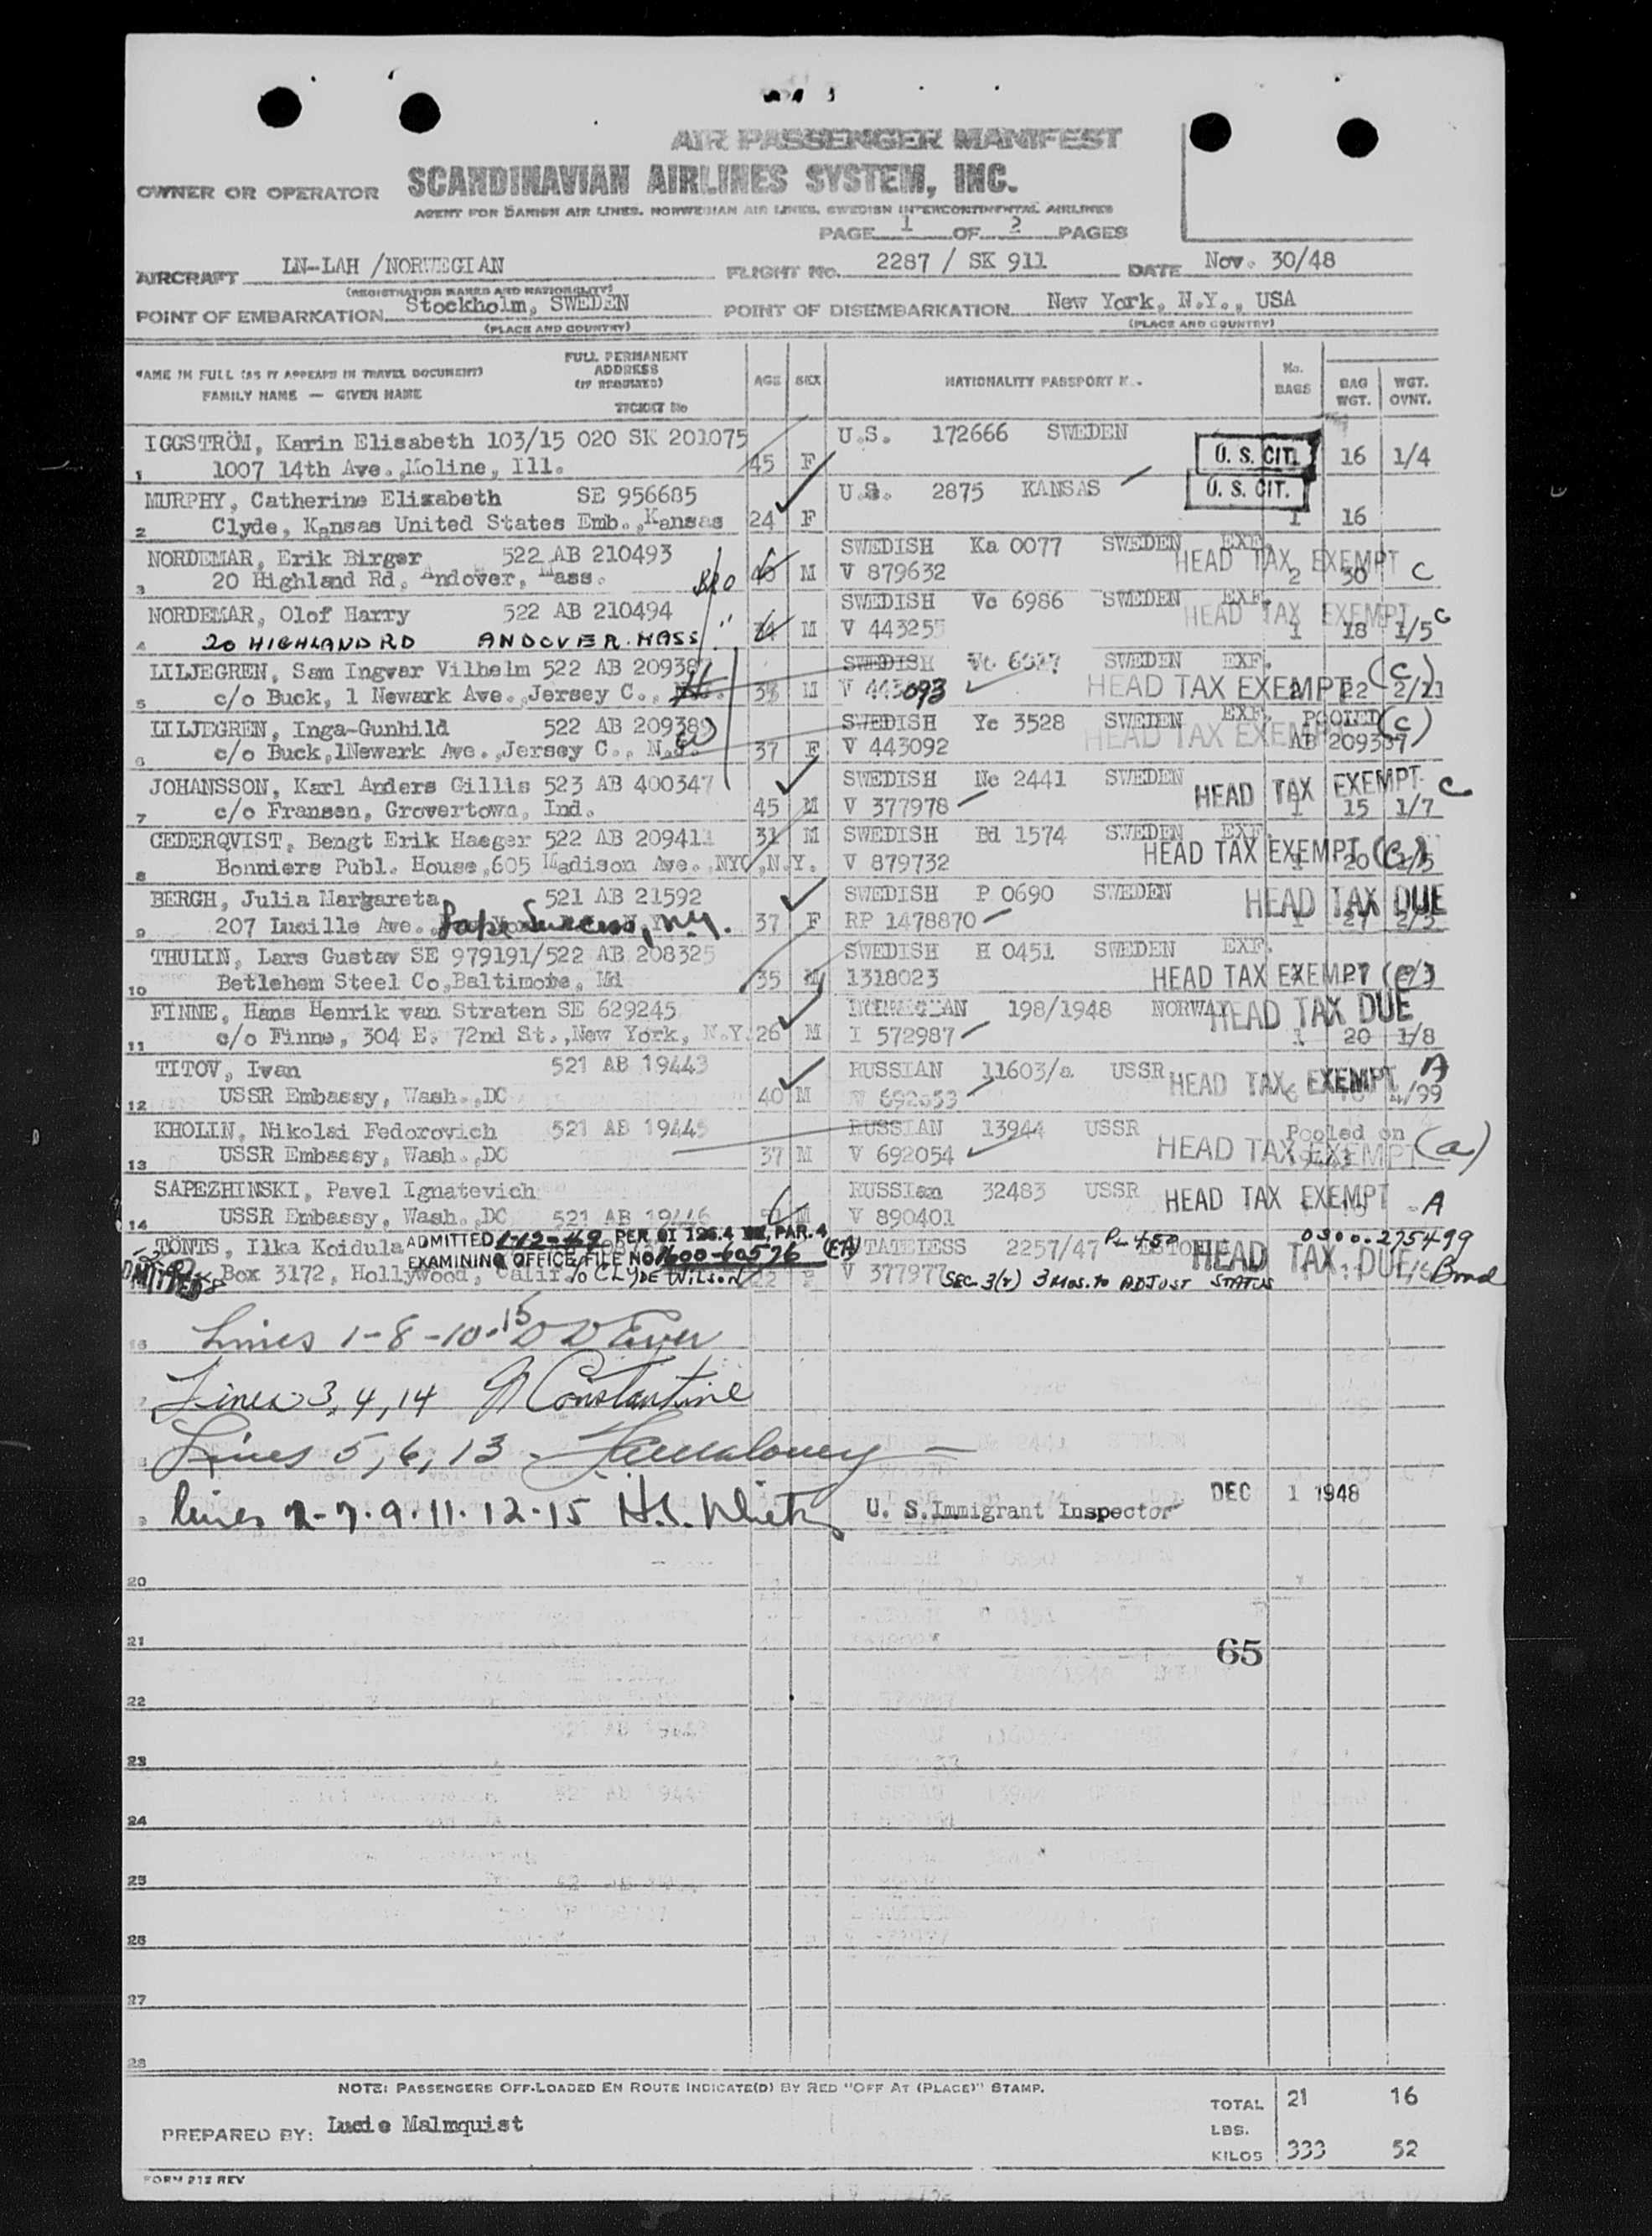 AIR PASSENGER MANIFEST
OWNER OR OPERATOR SCANDINAVIAN AIRLINES SYSTEM, INC.
AGENT FOR DANISH AIR LINES. NORWEGIAN AIR LINES. SWEDISH INTERCONTINENTAL AIRLINES
PAGE 1 OF 2 PAGES
AIRCRAFT LN-LAH /NORWEGIAN FLIGHT No. 2287 / SK 911 DATE Nov. 30/48
(REGISTRATION MARKS AND NATIONALITY)
POINT OF EMBARKATION Stockholm, SWEDEN POINT OF DISEMBARKATION New York, N.Y., USA
(PLACE AND COUNTRY) (PLACE AND COUNTRY)
NAME IN FULL (AS IT APPEARS IN TRAVEL DOCUMENT) FULL PERMANENT ADDRESS (IF REQUIRED) AGE SEX NATIONALITY PASSPORT No. No. BAGS BAG WGT. WGT. OVNT.
FAMILY NAME — GIVEN NAME TICKET No
IGGSTRÖM, Karin Elisabeth 103/15 020 SK 201075 U.S. 172666 SWEDEN U. S. CIT.
1 1007 14th Ave.,Moline, Ill. 45 F 1 16 1/4
MURPHY, Catherine Elisabeth SE 956685 U.S. 2875 KANSAS U. S. CIT.
2 Clyde, Kansas United States Emb.,Kansas 24 F 1 16
NORDEMAR, Erik Birger 522 AB 210493 SWEDISH Ka 0077 SWEDEN EXF. HEAD TAX EXEMPT
3 20 Highland Rd, Andover, Mass. M V 879632 2 30 C
NORDEMAR, Olof Harry 522 AB 210494 SWEDISH Vc 6986 SWEDEN EXF. HEAD TAX EXEMPT
4 20 HIGHLAND RD ANDOVER. MASS " M V 443255 1 18 1/5 C
LILJEGREN, Sam Ingvar Vilhelm 522 AB 209387 SWEDISH SWEDEN EXF. (C)
5 c/o Buck, 1 Newark Ave.,Jersey C., M V 443093 HEAD TAX EXEMPT 2 22 2/11
LILJEGREN, Inga-Gunhild 522 AB 209389 SWEDISH Yc 3528 SWEDEN EXF. POOLED (C)
6 c/o Buck,1Newark Ave.,Jersey C., N.J. 37 F V 443092 HEAD TAX EXEMPT AB 209387
JOHANSSON, Karl Anders Gillis 523 AB 400347 SWEDISH Nc 2441 SWEDEN HEAD TAX EXEMPT C
7 c/o Fransen, Grovertown, Ind. 45 M V 377978 1 15 1/7
CEDERQVIST, Bengt Erik Haeger 522 AB 209411 31 M SWEDISH Bd 1574 SWEDEN EXF.
8 Bonniers Publ. House,605 Madison Ave.,NYC,N.Y. V 879732 HEAD TAX EXEMPT 1 20 (C)
BERGH, Julia Margareta 521 AB 21592 SWEDISH P 0690 SWEDEN HEAD TAX DUE
9 207 Lucille Ave., 37 F RP 1478870 1 27 2/3
THULIN, Lars Gustav SE 979191/522 AB 208325 SWEDISH H 0451 SWEDEN EXF.
10 Betlehem Steel Co,Baltimore, Md 35 M 1318023 HEAD TAX EXEMPT
FINNE, Hans Henrik van Straten SE 629245 NORWEGIAN 198/1948 NORWAY HEAD TAX DUE
11 c/o Finne, 304 E. 72nd St.,New York, N.Y. 26 M I 572987 1 20 1/8
TITOV, Ivan 521 AB 19443 RUSSIAN 11603/a USSR HEAD TAX EXEMPT A
12 USSR Embassy, Wash.,DC 40 M V 692053 4/99
KHOLIN, Nikolai Fedorovich 521 AB 19445 RUSSIAN 13944 USSR Pooled on
13 USSR Embassy, Wash.,DC 37 M V 692054 HEAD TAX EXEMPT (a)
SAPEZHINSKI, Pavel Ignatevich RUSSIan 32483 USSR HEAD TAX EXEMPT
14 USSR Embassy, Wash.,DC 521 AB 19446 M V 890401 A
TÖNTS, Ilka Koidula ADMITTED 1-12-49 PER OI 126.4 PAR. 4 STATELESS 2257/47 ESTONIA 0300-275499
EXAMINING OFFICE FILE NO 1600-60576 HEAD TAX DUE
Box 3172, Hollywood, Calif c/o CLYDE WILSON 22 F V 377977 SEC. 3(2) 3 MOS. to ADJUST STATUS Bond
ADMITTED
Lines 1-8-10-15
Lines 3, 4, 14 Constantine
Lines 5, 6, 13
lines 2-7-9-11-12-15 U. S.Immigrant Inspector DEC 1 1948
20
21
65
22
23
24
25
26
27
28
NOTE: PASSENGERS OFF-LOADED EN ROUTE INDICATE(D) BY RED "OFF AT (PLACE)" STAMP.
TOTAL 21 16
PREPARED BY: Lucie Malmquist LBS.
KILOS 333 52
FORM 212 REV